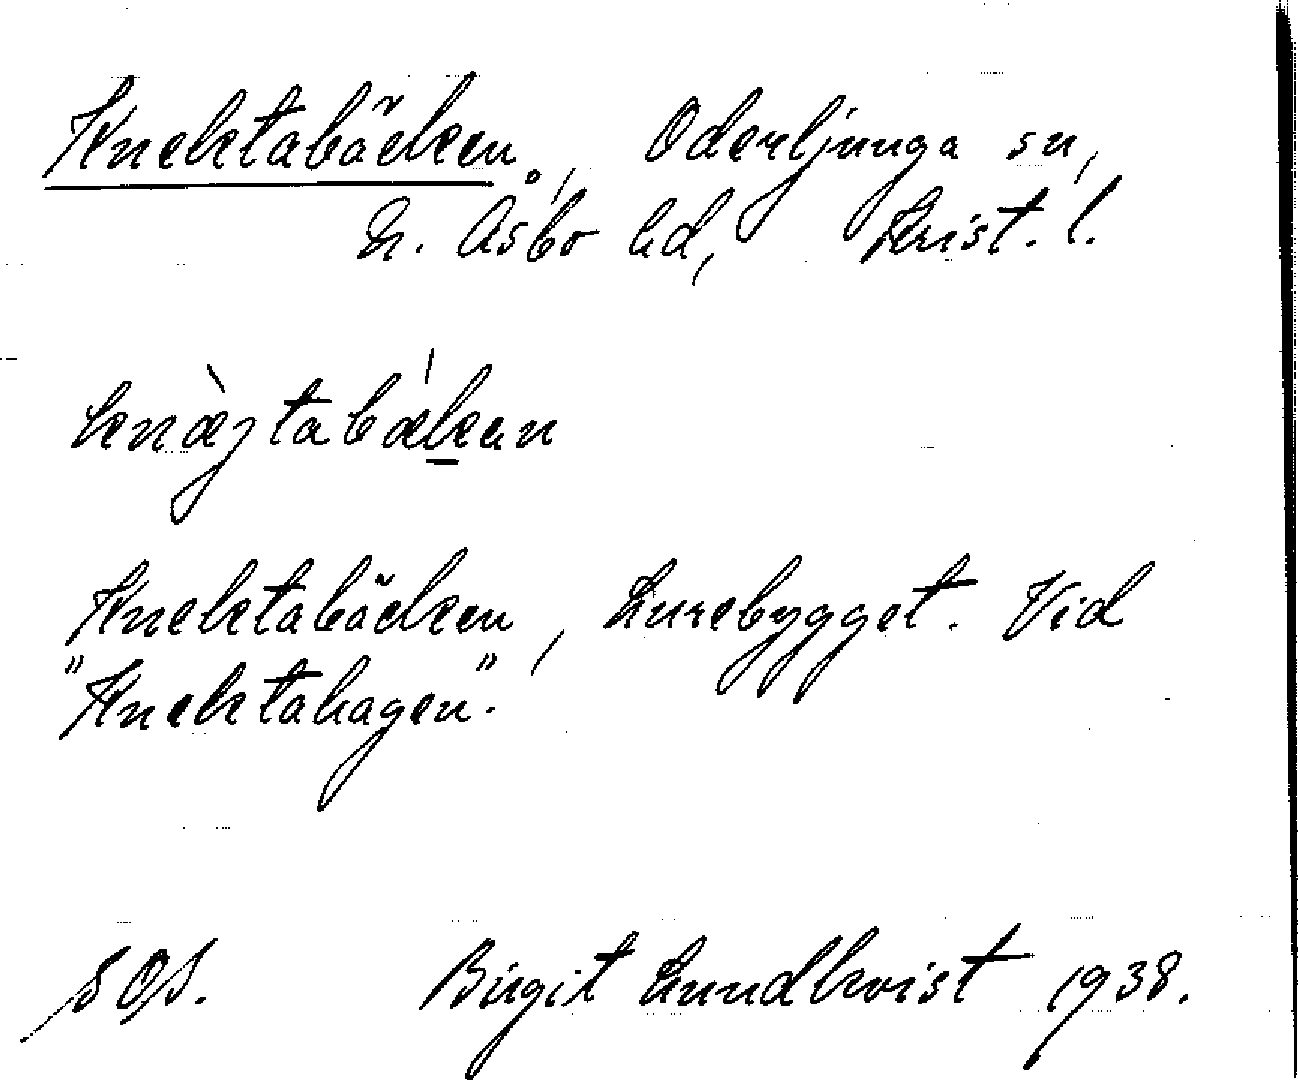 Knektabäcken, Oderljunga sn,
N. Åsbo hd, Krist. l.
knæ̀jtabækan
Knektabäcken, Lurebygget. Vid
"Knektahagen".
SOI. Birgit Lundkvist 1938.